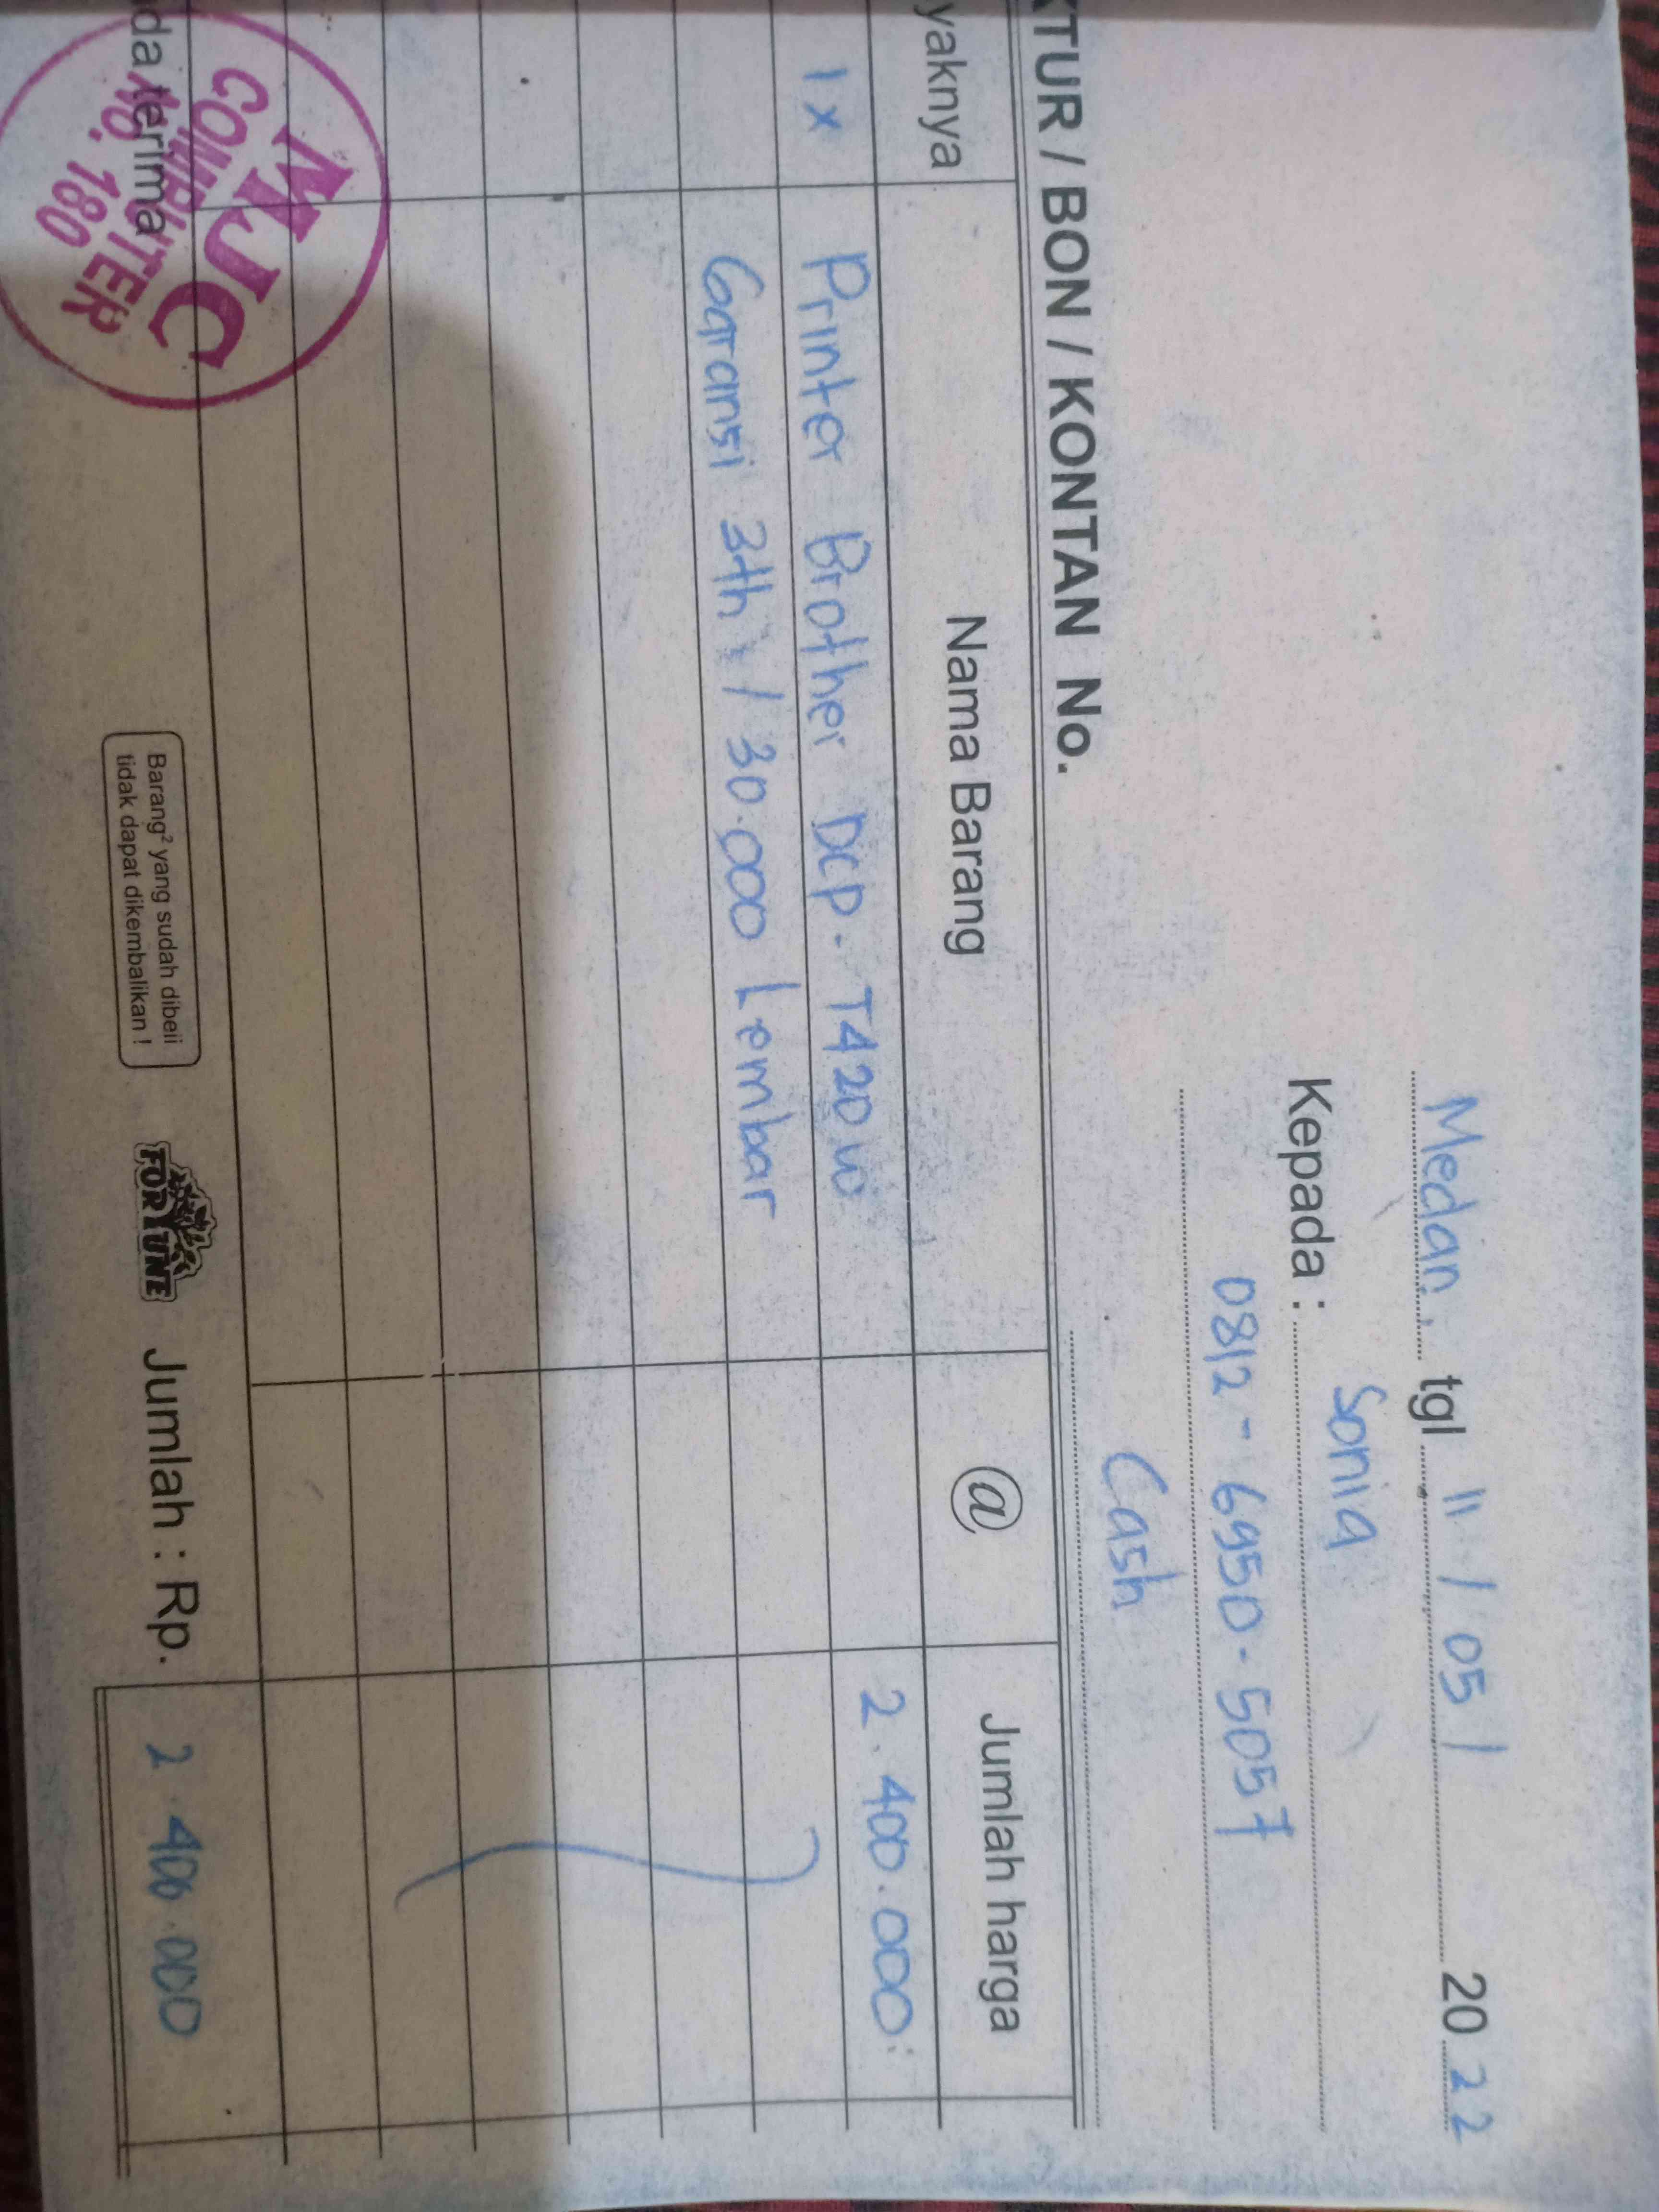 Medan. tgl 11 / 05 / 20 22
Kepada : Sonia
0812 - 6950 - 5057
Cash
KTUR / BON / KONTAN No.
yaknya Nama Barang @ Jumlah harga
1x Printer Brother DCP - T420W 2.400.000:
Garansi 3th / 30.000 Lembar
MJC
COMPUTER
NO. 180
da terima
Barang² yang sudah dibeli
tidak dapat dikembalikan !
FORTUNE
Jumlah : Rp. 2.400.000